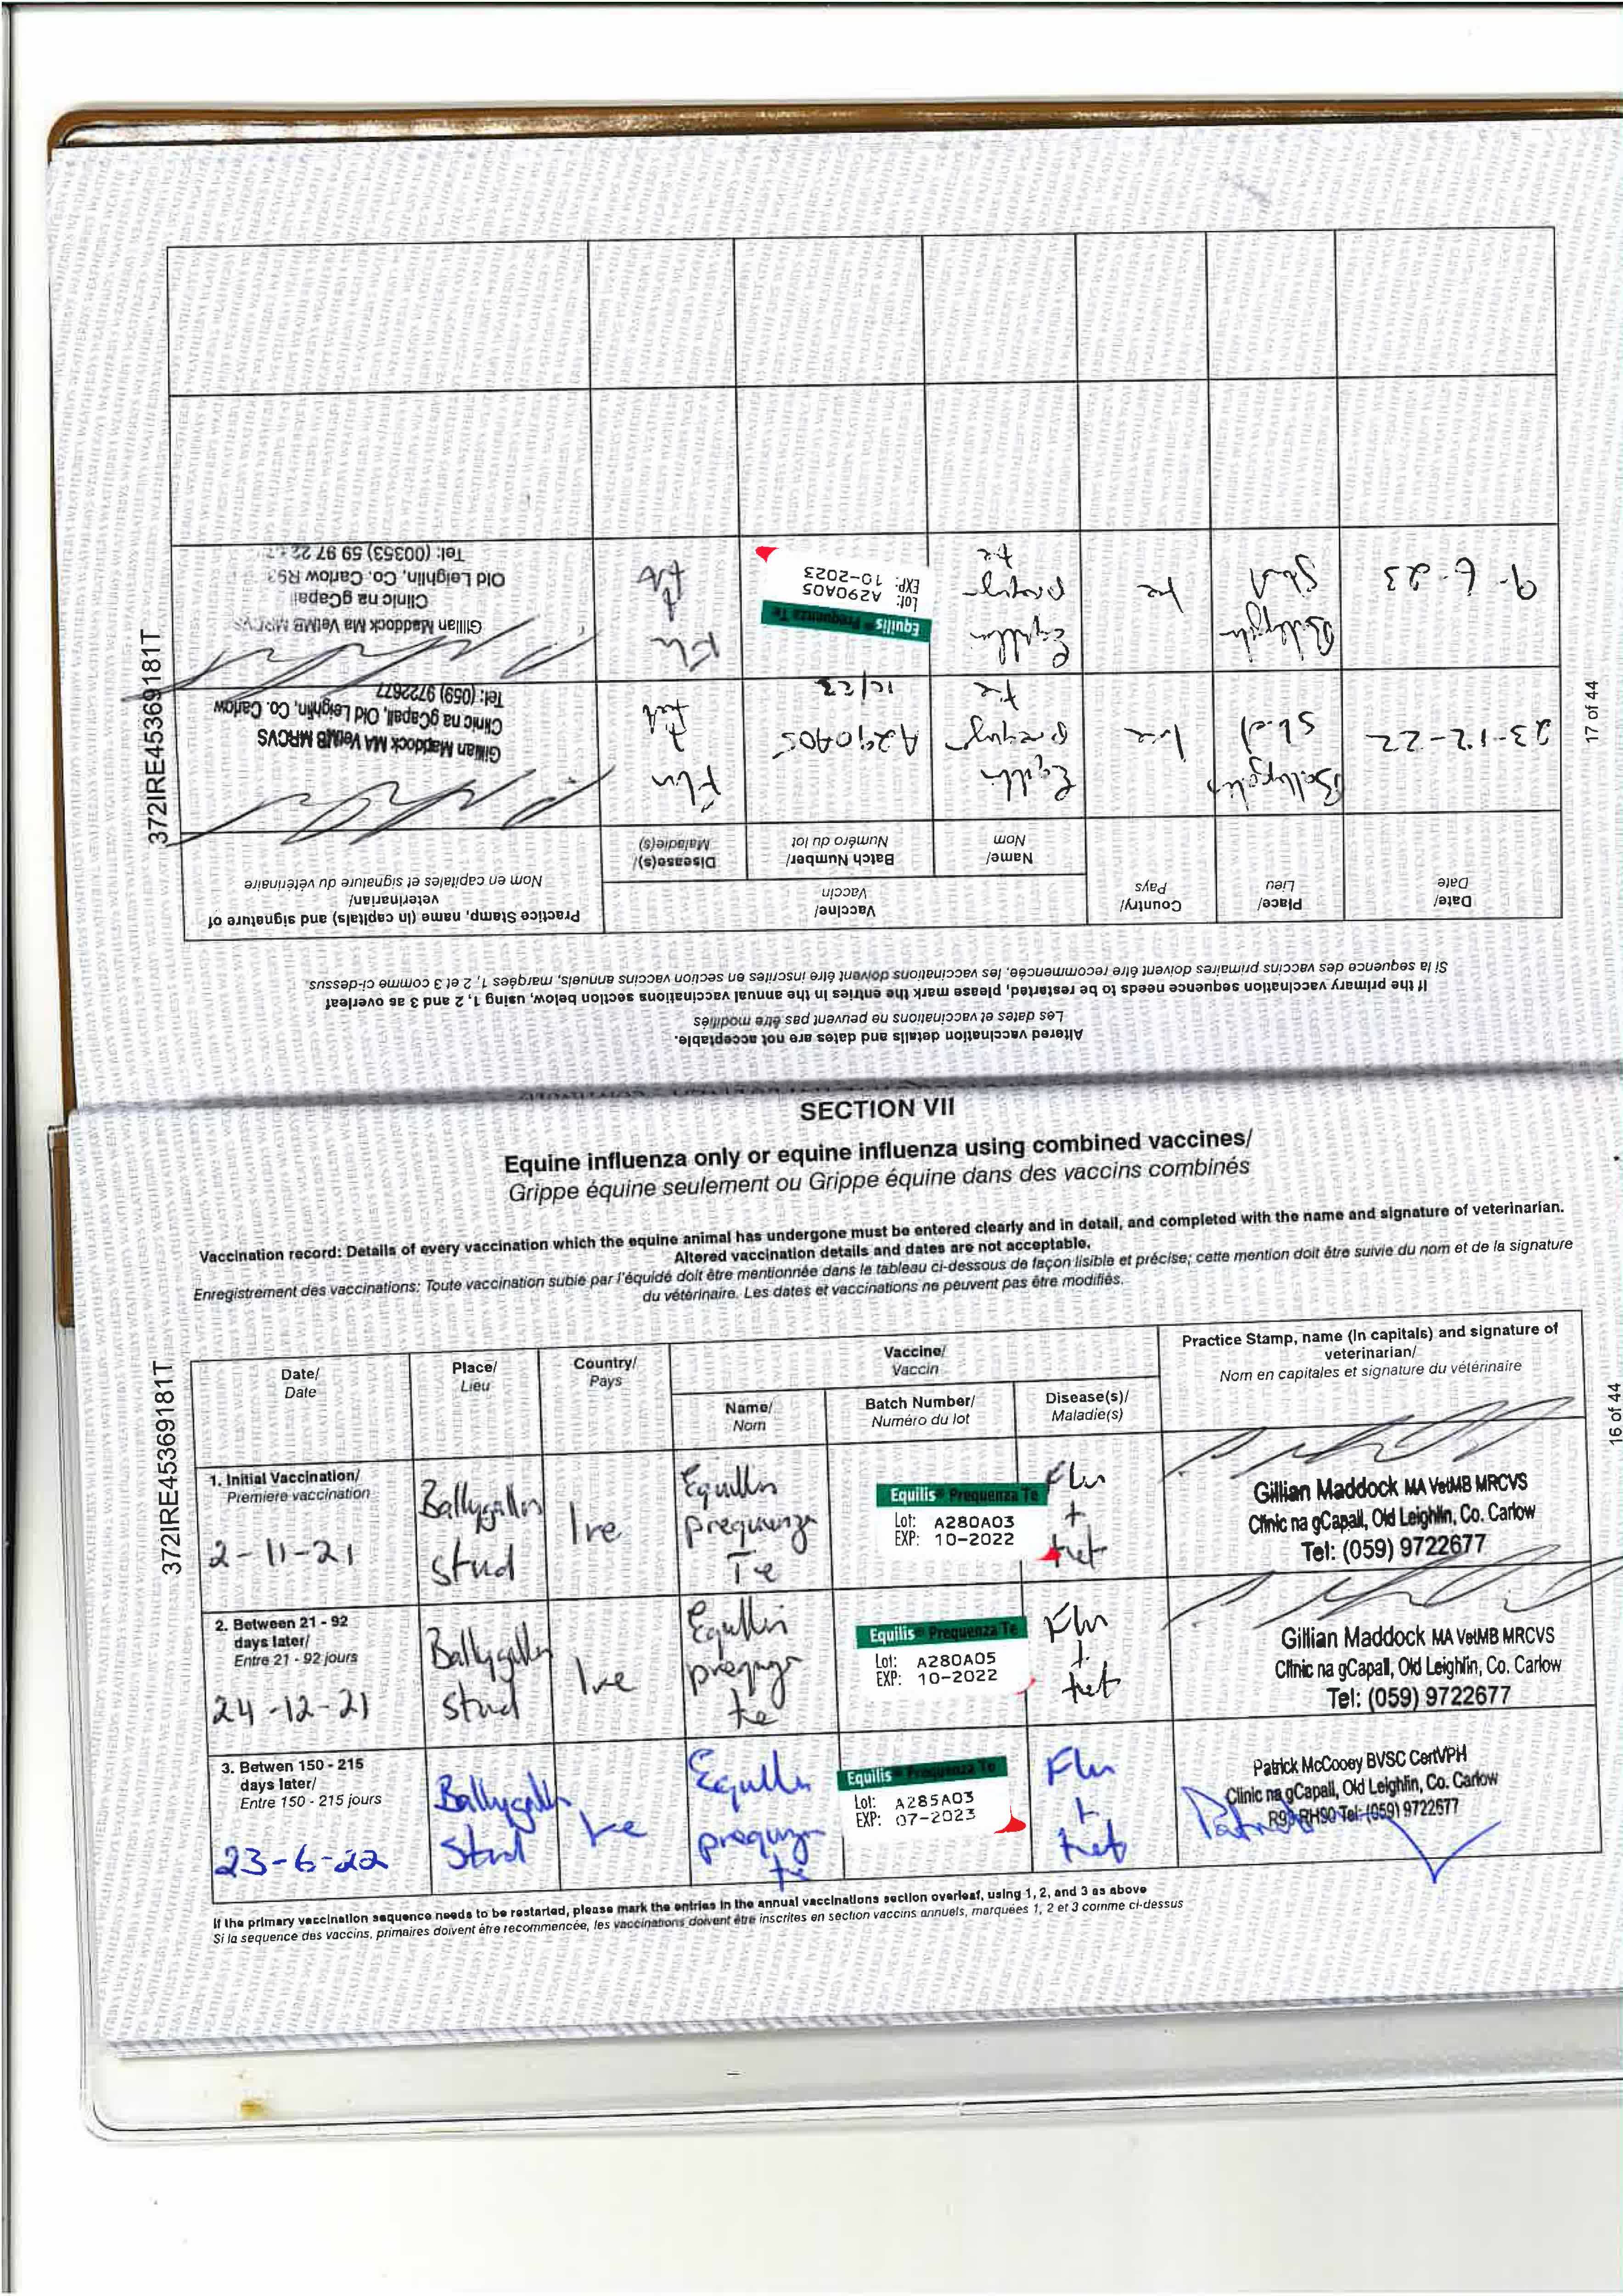 372IRE45369181T
17 of 44
Altered vaccination details and dates are not acceptable.
Les dates et vaccinations ne peuvent pas être modifiés
If the primary vaccination sequence needs to be restarted, please mark the entries in the annual vaccinations section below, using 1, 2 and 3 as overleaf
Si la sequence des vaccins primaires doivent être recommencée, les vaccinations doivent être inscrites en section vaccins annuels, marquées 1, 2 et 3 comme ci-dessus.
Date/
Date
Place/
Lieu
Country/
Pays
Vaccine/
Vaccin
Name/
Nom
Batch Number/
Numéro du lot
Disease(s)/
Maladie(s)
Practice Stamp, name (in capitals) and signature of
veterinarian/
Nom en capitales et signature du vétérinaire
23-12-22
Stud
Ire
te
A290A05
10/23
Flu
Gillian Maddock MA VetMB MRCVS
Clinic na gCapall, Old Leighlin, Co. Carlow
Tel: (059) 9722677
9-6-23
Stud
Ire
te
Equilis® Prequenza Te
Lot: A290A05
EXP: 10-2023
Flu
Gillian Maddock Ma VetMB MRCVS
Clinic na gCapall
Old Leighlin, Co. Carlow R93
Tel: (00353) 59 97 22
SECTION VII
Equine influenza only or equine influenza using combined vaccines/
Grippe équine seulement ou Grippe équine dans des vaccins combinés
Vaccination record: Details of every vaccination which the equine animal has undergone must be entered clearly and in detail, and completed with the name and signature of veterinarian.
Altered vaccination details and dates are not acceptable.
Enregistrement des vaccinations: Toute vaccination subie par l'équidé doit être mentionnée dans le tableau ci-dessous de façon lisible et précise; cette mention doit être suivie du nom et de la signature
du vétérinaire. Les dates et vaccinations ne peuvent pas être modifiés.
372IRE45369181T
16 of 44
Date/
Date
Place/
Lieu
Country/
Pays
Vaccine/
Vaccin
Name/
Nom
Batch Number/
Numéro du lot
Disease(s)/
Maladie(s)
Practice Stamp, name (in capitals) and signature of
veterinarian/
Nom en capitales et signature du vétérinaire
1. Initial Vaccination/
Premiere vaccination
2-11-21
Stud
Ire
Te
Equilis® Prequenza Te
Lot: A280A03
EXP: 10-2022
Flu
+
tet
Gillian Maddock MA VetMB MRCVS
Clinic na gCapall, Old Leighlin, Co. Carlow
Tel: (059) 9722677
2. Between 21 - 92
days later/
Entre 21 - 92 jours
24-12-21
Stud
Ire
te
Equilis® Prequenza Te
Lot: A280A05
EXP: 10-2022
Flu
+
tet
Gillian Maddock MA VetMB MRCVS
Clinic na gCapall, Old Leighlin, Co. Carlow
Tel: (059) 9722677
3. Betwen 150 - 215
days later/
Entre 150 - 215 jours
23-6-22
Stud
Ire
te
Equilis® Prequenza Te
Lot: A285A03
EXP: 07-2023
Flu
+
tet
Patrick McCooey BVSC CertVPH
Clinic na gCapall, Old Leighlin, Co. Carlow
R93 RH90 Tel: (059) 9722677
If the primary vaccination sequence needs to be restarted, please mark the entries in the annual vaccinations section overleaf, using 1, 2, and 3 as above
Si la sequence des vaccins, primaires doivent être recommencée, les vaccinations doivent être inscrites en section vaccins annuels, marquées 1, 2 et 3 comme ci-dessus